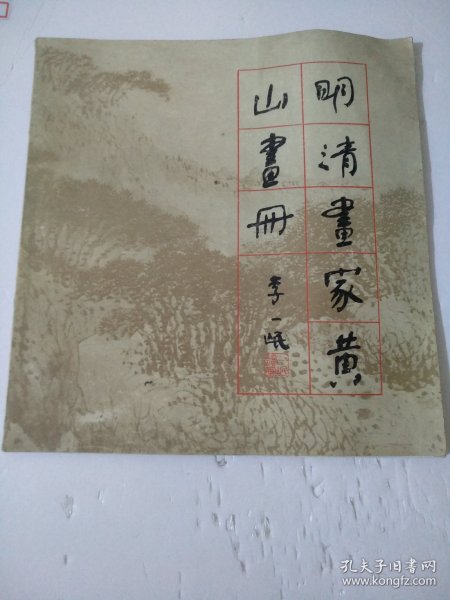 明清畫家黄
山畫冊
李一氓
孔夫子旧书网
www.kongfz.com